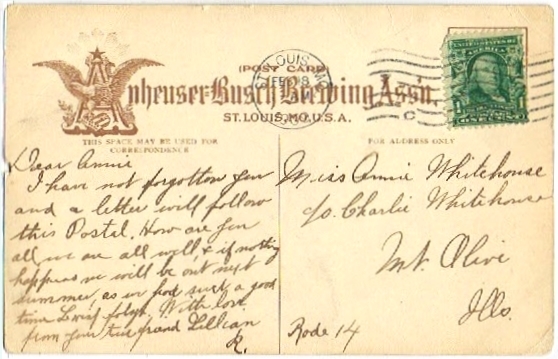 (POST CARD)
Anheuser-Busch Brewing Ass'n.
ST. LOUIS, MO. U.S.A.
ST. LOUIS, MO.
FEB 18
C
UNITED STATES OF
THIS SPACE MAY BE USED FOR
CORRESPONDENCE
FOR ADDRESS ONLY
Dear Annie
I have not forgotten you
and a letter will follow
this Postal. How are you
all we are all well, & if nothing
happens we will be out next
summer, as we had such a good
time with
With love
from your true friend Lillian
R.
Miss Annie Whitehouse
c/o. Charlie Whitehouse
Mt. Olive
Ills.
Rode 14